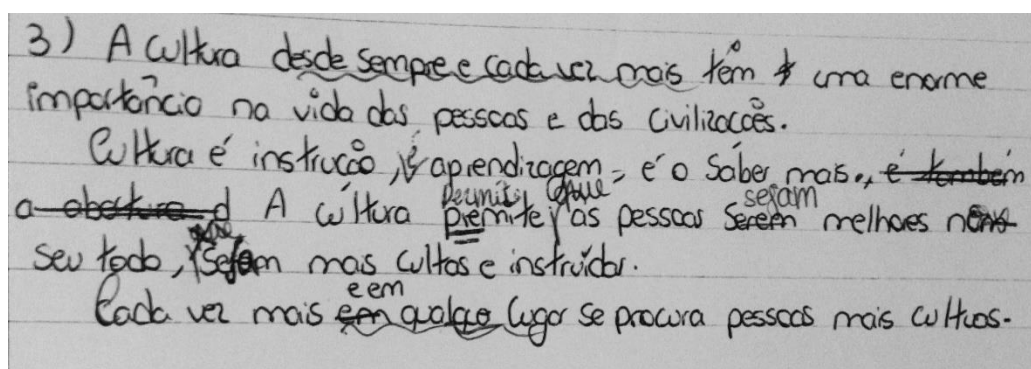 3) A cultura desde sempre e cada vez mais têm uma enorme
importância na vida das pessoas e das civilizações.
Cultura é instrução, é aprendizagem, é o saber mais., é também
a abertura d A cultura permite que as pessoas sejam melhores no
seu todo, sejam mais cultas e instruídas.
Cada vez mais e em qualquer lugar se procura pessoas mais cultas.